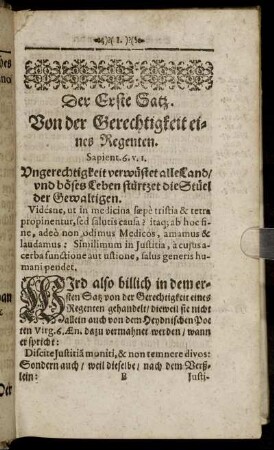 I.
Der Erste Satz.
Von der Gerechtigkeit ei-
nes Regenten.
Sapient. 6. v. 1.
Vngerechtigkeit verwüstet alle Land/
vnd böses Leben stürtzet die Stüel
der Gewaltigen.
Videáne, ut in medicina sæpè tristia & tetra
propinentur, sed salutis causa? itaq; ab hoc fi-
ne, adeò non odimus Medicos, amamus &
laudamus? Simillimum in Justitia, à cujus a-
cerba functione aut ustione, salus generis hu-
mani pendet.
WIrd also billich in dem er-
sten Satz von der Gerechtigkeit eines
Regenten gehandelt/ dieweil sie nicht
allein auch von dem Heydnischen Poe-
ten Virg. 6. Æn. dazu vermahnet werden/ wann
er spricht:
Discite Justitiã moniti, & non temnere divos:
Sondern auch/ weil dieselbe/ nach dem Verß-
lein: B Justi-